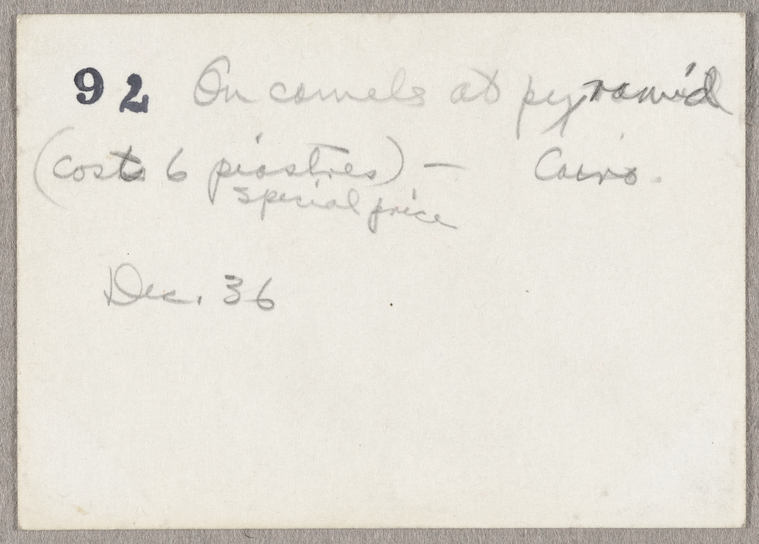 92 On camels at pyramid
(costs 6 piastres) — Cairo.
special price
Dec. 36